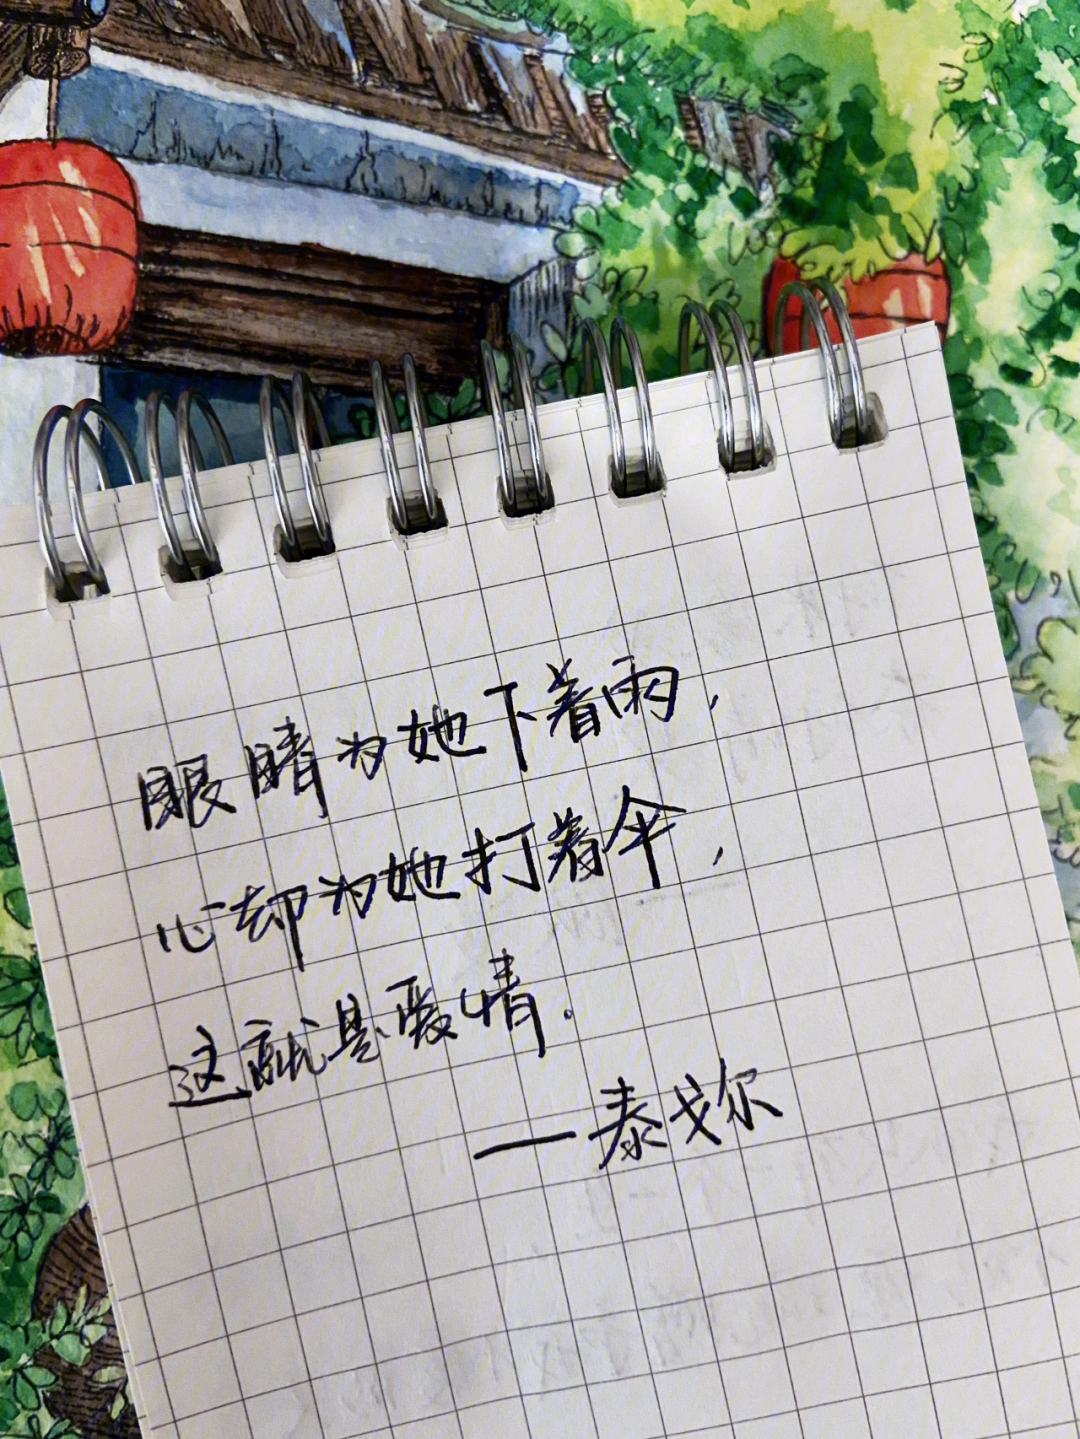 眼睛为她下着雨，
心却为她打着伞，
这就是爱情.
—泰戈尔